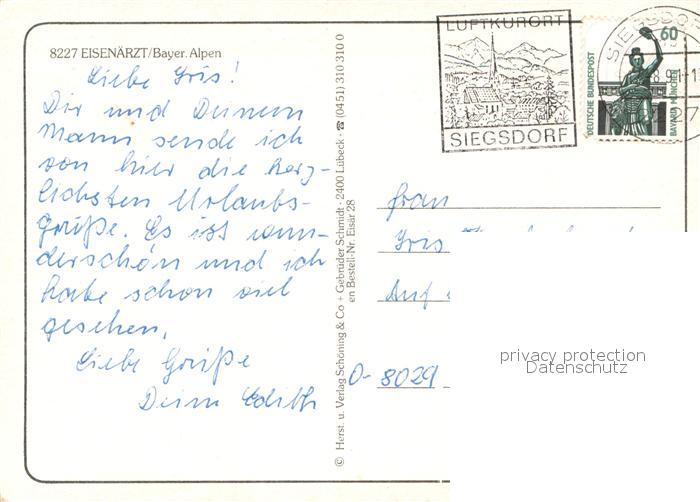 8227 EISENÄRZT/Bayer. Alpen
Liebe Iris!
Dir und Deinem
Mann sende ich
von hier die herz-
lichsten Urlaubs-
grüße. Es ist wun-
derschön und ich
habe schon viel
gesehen.
Liebe Grüße
Deine Edith
© Herst. u. Verlag Schöning & Co + Gebrüder Schmidt · 2400 Lübeck · ☎ (0451) 310 310 0
en Bestell-Nr. Eisär 28
LUFTKURORT
SIEGSDORF
SIEGSDO
DEUTSCHE BUNDESPOST
60
BAVARIA MÜNCHEN
Frau
Iris
Auf
O-8029
privacy protection
Datenschutz